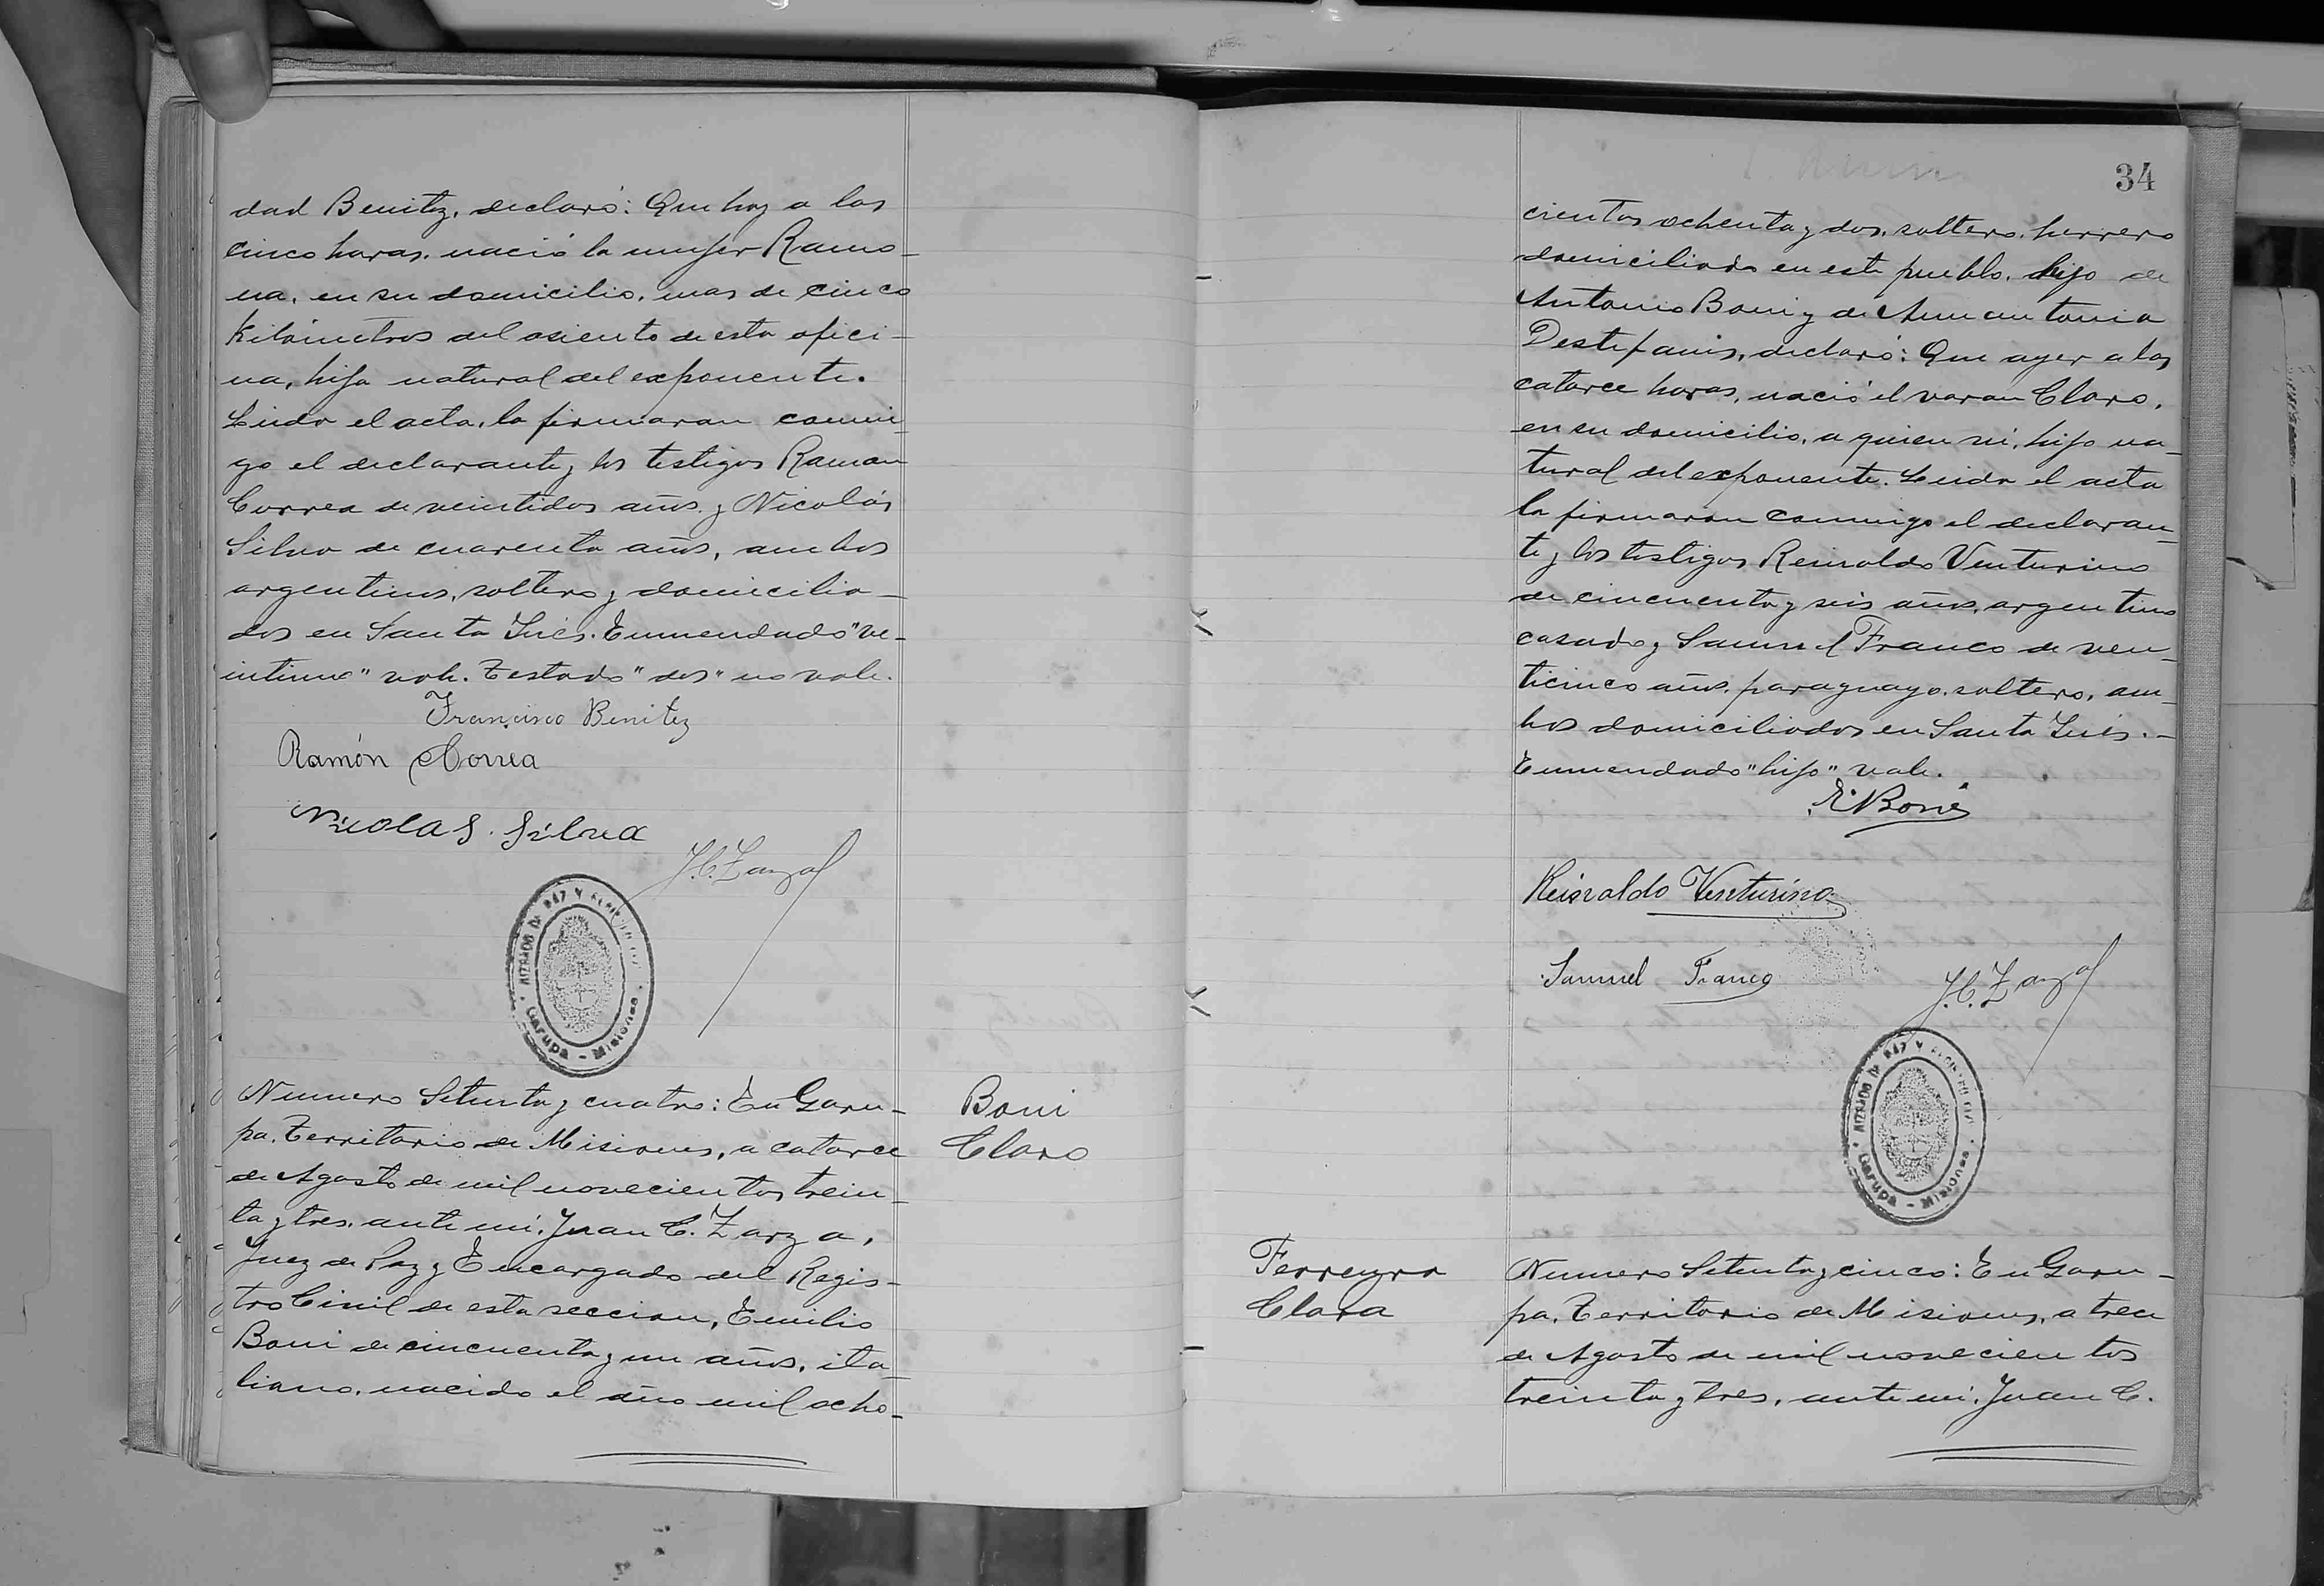 dad Benitez, declaró: Que hoy a las
cinco horas, nació la mujer Ramo-
na, en su domicilio, mas de cinco
Kilómetros del asiento de esta ofici-
na, hija natural del exponente.
Leida el acta, la firmaran conmi-
go el declarante y los testigos Ramon
Correa de veintidos años, y Nicolás
Silva de cuarenta años, ambos
argentinos, solteros y domicilia-
dos en Santa Inés. Enmendado "ve-
intiuno" vale. Testado "dos" no vale.
Francisco Benitez
Ramón Correa
Nicolas. Silvea
J.C. Zarza
JUZGADO DE PAZ Y
Garupa - Misiones
Numero Setenta y cuatro: En Garu-
pa, Territorio de Misiones, a catorce
de Agosto de mil novecientos trein-
ta y tres, ante mi, Juan C. Zarza,
Juez de Paz y Encargado del Regis-
tro Civil de esta seccion, Emilio
Boni de cincuenta y un años, ita-
liano, nacido el año mil ocho-
Boni
Claro
34
cientos ochenta y dos, soltero, herrero
domiciliado en este pueblo, hijo de
Antonio Boni y de
Destefanis, declaró: Que ayer a las
catorce horas, nació el varon Claro,
en su domicilio, a quien vi, hijo na-
tural del exponente. Leida el acta
la firmaron conmigo el declaran-
te y los testigos Reinaldo Venturino
de cincuenta y seis años, argentino
casado y Samuel Franco de vein-
ticinco años, paraguayo, soltero, am-
bos domiciliados en Santa Inés.-
Enmendado "hijo" vale.
E. Boni
Reinaldo Venturino
Samuel Franco
J.C. Zarza
JUZGADO DE PAZ Y
Garupa - Misiones
Ferreyra
Clara
Numero Setenta y cinco: En Garu-
pa, Territorio de Misiones, a trece
de Agosto de mil novecientos
treinta y tres, ante mi, Juan C.